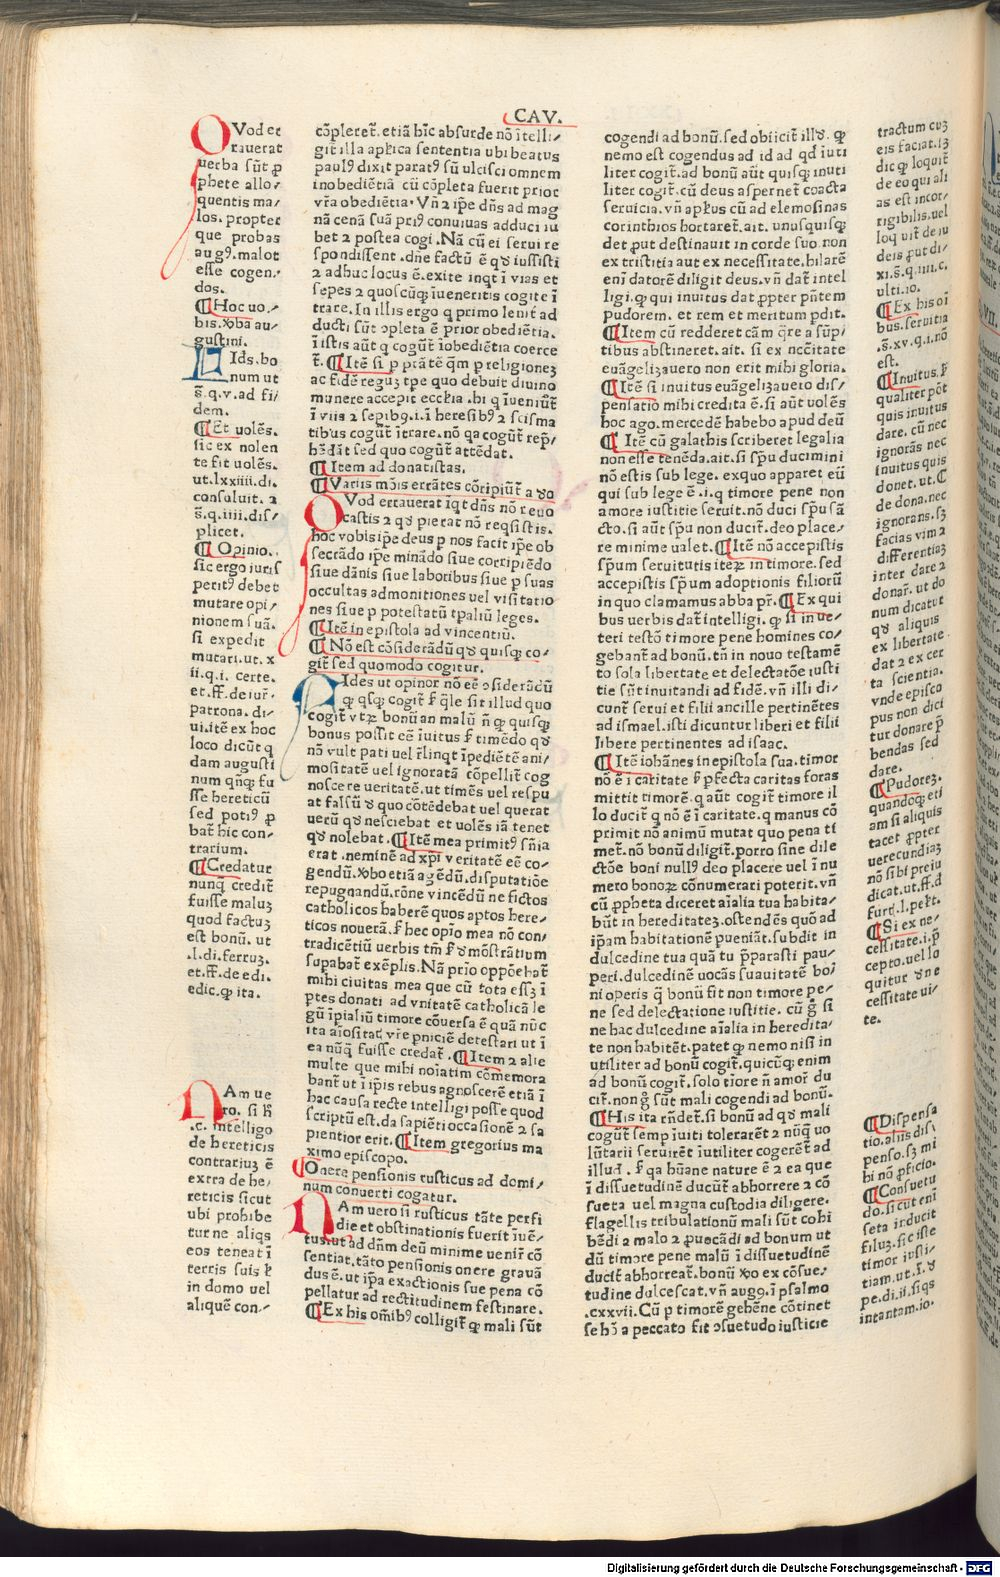 CAV.
QVod et
rauerat
uerba sūt ꝓ
phete allo/
quentis ma/
los. propter
que probas
augꝰ. malos
esse cogen/
dos.
¶ Hoc uo/
bis. ƿba au/
gustini.
FIds. bo
num ut
s̄. q. v. ad fi/
dem.
¶ Et uolēs.
sic ex nolen
te fit uolēs.
ut. lxxiiii. di.
consuluit. ⁊
s̄. q. iiii. dis/
plicet.
¶ Opinio.
sic ergo iuris
peritꝰ debet
mutare opi/
nionem suā.
si expedit
mutari. ut. x
ii. q. i. certe.
et. ff. de iur̄.
patrona. di/
ui. itē ex hoc
loco dicūt q
dam augusti
num qn̄qꝫ fu
isse hereticū
sed potiꝰ ꝓ
bat̄ hic con/
trarium.
¶ Credatur
nunq̄ credit̄
fuisse maluꝫ
quod factuꝫ
est bonū. ut
.l. di. ferruꝫ.
et. ff. de edi.
edic. ꝙ ita.
NAm ue
ro. si h̄
.c. intelligo
de hereticis
contrariuꝫ ē
extra de he/
reticis sicut
ubi prohibe
tur ne aliqs
eos teneat ī
terris suis ł
in domo uel
aliquē con/
cōpleret̄. etiā hīc absurde nō ītelli/
git illa apłica sententia ubi beatus
paulꝰ dixit paratꝰ sū ulcisci omnem
inobediētiā cū cōpleta fuerit prior
vr̄a obediētia. Vn̄ ⁊ ipe dn̄s ad mag
nā cenā suā priꝰ conuiuas adduci iu
bet ⁊ postea cogi. Nā cū ei serui re
spondissent. dne factū ē qđ iussisti
⁊ adhuc locus ē. exite inqt ī vias et
sepes ⁊ quoscūqꝫ īueneritis cogite ī
trare. In illis ergo q primo lenit̄ ad
ducti sūt ꝯpleta ē prior obediētia.
ī istis aūt q cogūt̄ īobediētia coerce
t̄. ¶ Itē si ꝑ ptātē qm̄ ꝑ religioneꝫ
ac fidē reguꝫ tꝑe quo debuit diuino
munere accepit eccłia. hi q īueniūt̄
ī viis ⁊ sepibꝰ. i. ī heresibꝰ ⁊ scisma
tibus cogūt̄ ītrare. nō qa cogūt̄ rep/
hēdāt sed quo cogūt̄ attēdat.
¶ Item ad donatistas.
¶ Variis mōis errātes cōripiūt̄ a đo
QVod errauerat īqt dn̄s nō reuo
castis ⁊ qđ pierat nō reqsistis.
hoc vobis ipe deus ꝑ nos facit ipe ob
secrādo ipe minādo siue corripiēdo
siue dānis siue laboribus siue ꝑ suas
occultas admonitiones uel visitatio
nes siue ꝑ potestatū tꝑaliū leges.
¶ Itē in epistola ad vincentiū.
¶ Nō est cōsiderādū qđ quisqꝫ co/
git̄ sed quomodo cogitur.
VIdes ut opinor nō eē ꝯsiderādū
ꝙ qsqꝫ cogit̄ ł q̄le sit illud quo
cogit̄ vtꝝ bonū an malū n̄ ꝙ quisqꝫ
bonus possit eē īuitus ł timēdo qđ
nō vult pati uel r̄linqt īpediētē ani/
mositatē uel ignoratā cōpellit̄ cog
noscere ueritatē. ut timēs uel respu
at falsū đ quo cōtēdebat uel querat
uerū qđ nesciebat et uolēs iā tenet
qđ nolebat. ¶ Itē mea primitꝰ sn̄ia
erat. neminē ad xp̄i veritatē eē co/
gendū. ƿbo etiā agēdū. disputatiōe
repugnandū. rōne vincēdū ne fictos
catholicos haberē quos aptos here/
ticos nouerā. ł hec opīo mea nō con/
tradicētiū uerbis tm̄ ł đmōstrātium
supabat̄ exēplis. Nā prīo oppōebat̄
mihi ciuitas mea que cū tota eēꝫ ī
ptes donati ad vnitatē catholicā le
gū īpialiū timore cōuersa ē quā nūc
ita aīositat̄ vr̄e pniciē detestari ut ī
ea nūq̄ fuisse credat̄. ¶ Item ⁊ alie
multe que mihi noīatim cōmemora
bant̄ ut ī ipis rebus agnoscerē etiā ī
hac causa recte intelligi posse quod
scriptū est. da sapiēti occasionē ⁊ sa
pientior erit. ¶ Item gregorius ma
ximo episcopo.
¶ Onere pensionis rusticus ad domi/
num conuerti cogatur.
NAm uero si rusticus tāte perfi
die et obstinationis fuerit īuē/
tus. ut ad dn̄m deū minime uenir̄ cō
sentiat. tāto pensionis onere grauā
dus ē. ut ip̄a exactionis sue pena cō
pellatur ad rectitudinem festinare.
¶ Ex his om̄ibꝰ colligit̄ ꝙ mali sūt
cogendi ad bonū. sed obiicit̄ illđ. ꝙ
nemo est cogendus ad id ad qđ īuti
liter cogit̄. ad bonū aūt quisqꝫ inuti
liter cogit̄. cū deus aspernet̄ coacta
seruicia. vn̄ apłus cū ad elemosinas
corinthios hortaret̄. ait. unusquisqꝫ
det ꝓut destinauit in corde suo. non
ex tristitia aut ex necessitate. hilarē
enī datorē diligit deus. vn̄ dat̄ intel
ligi. ꝙ qui inuitus dat ꝓpter pn̄tem
pudorem. et rem et meritum pdit.
¶ Item cū redderet cām q̄re a sūp/
tibus abstineret. ait. si ex nēcitate
euāgelizauero non erit mihi gloria.
¶ Itē si inuitus euāgelizauero dis/
pensatio mihi credita ē. si aūt uolēs
hoc ago. mercedē habebo apud deū
¶ Itē cū galathis scriberet legalia
non esse tenēda. ait. si spū ducimini
nō estis sub lege. exquo apparet eū
qui sub lege ē. i. q timore pene non
amore iustitie seruit. nō duci spū sā
cto. si aūt spū non ducit̄. deo place/
re minime ualet. ¶ Itē nō accepistis
spūm seruitutis iteꝝ in timore. sed
accepistis spūm adoptionis filiorū
in quo clamamus abba pr̄. ¶ Ex qui
bus uerbis dat̄ intelligi. ꝙ si in ue/
teri testō timore pene homines co/
gebant̄ ad bonū. tn̄ in nouo testamē
to sola libertate et delectatōe iusti
tie sūt inuitandi ad fidē. vn̄ illi di/
cunt̄ serui et filii ancille pertinētes
ad ismael. isti dicuntur liberi et filii
libere pertinentes ad isaac.
¶ Itē iohānes in epistola sua. timor
nō ē ī caritate ł pfecta caritas foras
mittit timorē. q aūt cogit̄ timore il
lo ducit̄ q nō ē ī caritate. q manus cō
primit nō animū mutat quo pena ti
met̄. nō bonū diligit̄. porro sine dile
ctōe boni nullꝰ deo placere uel ī nu
mero bonoꝝ cōnumerari poterit. vn̄
cū ꝓpheta diceret aīalia tua habita/
būt in hereditateꝫ. ostendēs quō ad
ip̄am habitationē pueniāt. subdit in
dulcedine tua quā tu pparasti pau/
peri. dulcedinē uocās suauitatē bo/
ni operis q̄ bonū fit non timore pe/
ne sed delectatione iustitie. cū ḡ si
ne hac dulcedine aīalia in heredita/
te non habitēt. patet ꝙ nemo nisi in
utiliter ad bonū cogit̄. quicūqꝫ enim
ad bonū cogit̄. solo tīore n̄ amor̄ du
cit̄. non ḡ sūt mali cogendi ad bonū.
¶ His ita rn̄det̄. si bonū ad qđ mali
cogūt̄ semp īuiti tolerarēt ⁊ nūq̄ uo
lūtarii seruirēt īutiliter cogerēt̄ ad
illud. ł qa hūane nature ē ⁊ ea que
ī dissuetudinē ducūt̄ abhorrere ⁊ cō
sueta uel magna custodia diligere.
flagellis tribulationū mali sūt cohi
bēdi a malo ⁊ ꝓuocādi ad bonum ut
dū timore pene malū ī dissuetudinē
ducit̄ abhorreat̄. bonū ƿo ex cōsue/
tudine dulcescat. vn̄ augꝰ. ī psalmo
.cxxvii. Cū ꝑ timorē gehēne cōtinet
se hō a peccato fit ꝯsuetudo iusticie
tractum cuꝫ
eis faciat. iꝫ
dic ꝙ loquit̄
de eo qui ali
as est incor/
rigibilis. uel
loquit̄ de iu
deis ꝓut di/
xi. s̄. q. iiii. c.
ulti. io.
¶ Ex his oī
bus. seruitia
.s̄. xv. q. i. nō
est.
¶ Inuitus. ł
qualiter pōt
quis inuitus
dare. cū nec
ignorās nec
inuitus quis
donet. ut. C̄
de dona. nec
ignorans. sꝫ
facias vim ⁊
differentiaꝫ
inter dare ⁊
donar̄. ut do
num dicatur
qđ aliquis
ex libertate
dat ⁊ ex cer
ta scientia.
vnde episco
pus non dici
tur donare p̄
bendas sed
dare.
¶ Pudoreꝫ.
quandoqꝫ eti
am si aliquis
tacet ꝓpter
uerecundiaꝫ
nō sibi preiu
dicat. ut. ff. d
furt̄. l. pełt.
¶ Si ex ne/
cessitate. i. p̄
cepto. uel lo
quitur đ ne
cessitate ui/
te.
¶ Dispensa
tio. aliis dis/
penso. sꝫ mi
hi nō ꝓficio.
¶ Consuetu
do. sicut enī
seta īrducit
filuꝫ. sic iste
timor iusti/
tiam. ut. ī. đ
pe. di. ii. si qs
intantam. io.
Digitalisierung gefördert durch die Deutsche Forschungsgemeinschaft - DFG